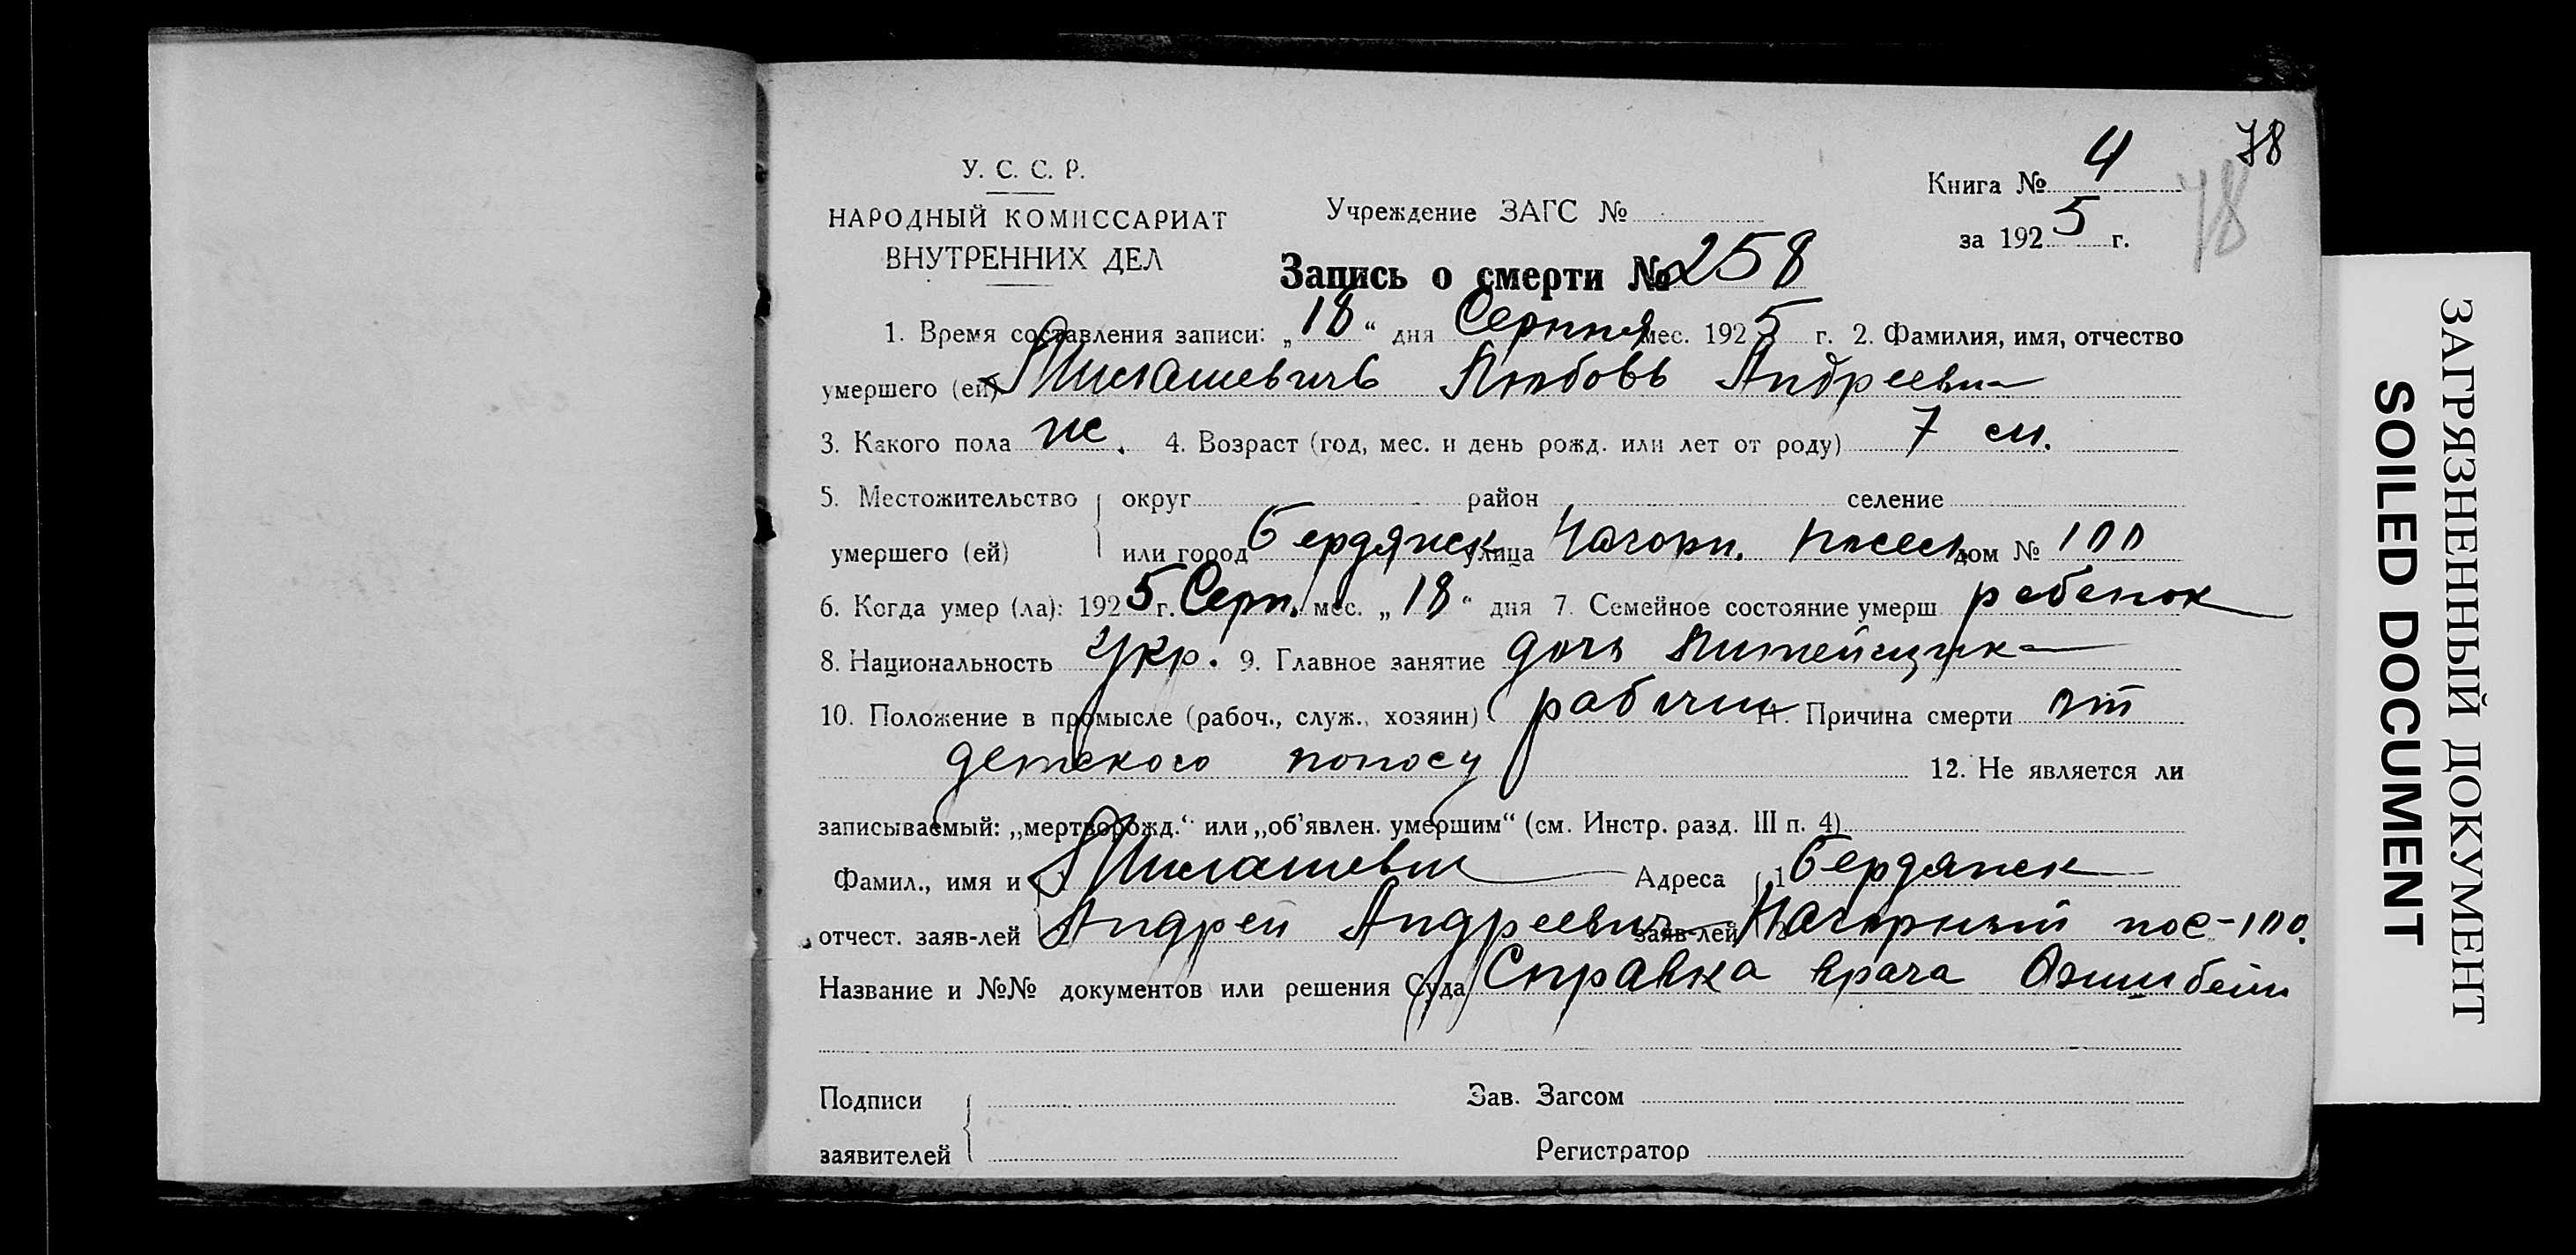 78
Книга № 4
78
У. С. С. Р.
НАРОДНЫЙ КОМИССАРИАТ
ВНУТРЕННИХ ДЕЛ
Учреждение ЗАГС №
за 1925 г.
Запись о смерти № 258
1. Время составления записи: „18“ дня Серпня мес. 1925 г. 2. Фамилия, имя, отчество
умершего (ей) Милашевичъ Любовь Андреевн
3. Какого пола ж. 4. Возраст (год, мес. и день рожд. или лет от роду) 7 м.
5. Местожительство округ район селение
умершего (ей) или город Бердянск улица Нагорн. посел. дом № 100
6. Когда умер (ла): 1925 г. Серп. мес. „18“ дня 7. Семейное состояние умерш ребенок
8. Национальность Укр. 9. Главное занятие дочь литейщика
10. Положение в промысле (рабоч., служ., хозяин) рабочий 11. Причина смерти от
детского поносу 12. Не является ли
записываемый: „мертворожд.“ или „об’явлен. умершим“ (см. Инстр. разд. III п. 4)
Фамил., имя и Милашевич Адреса 1 Бердянск
отчест. заяв-лей Андрей Андреевич заяв-лей Нагорный пос-100.
Название и №№ документов или решения Суда Справка врача
Подписи Зав. Загсом
заявителей Регистратор
ЗАГРЯЗНЕННЫЙ ДОКУМЕНТ
SOILED DOCUMENT